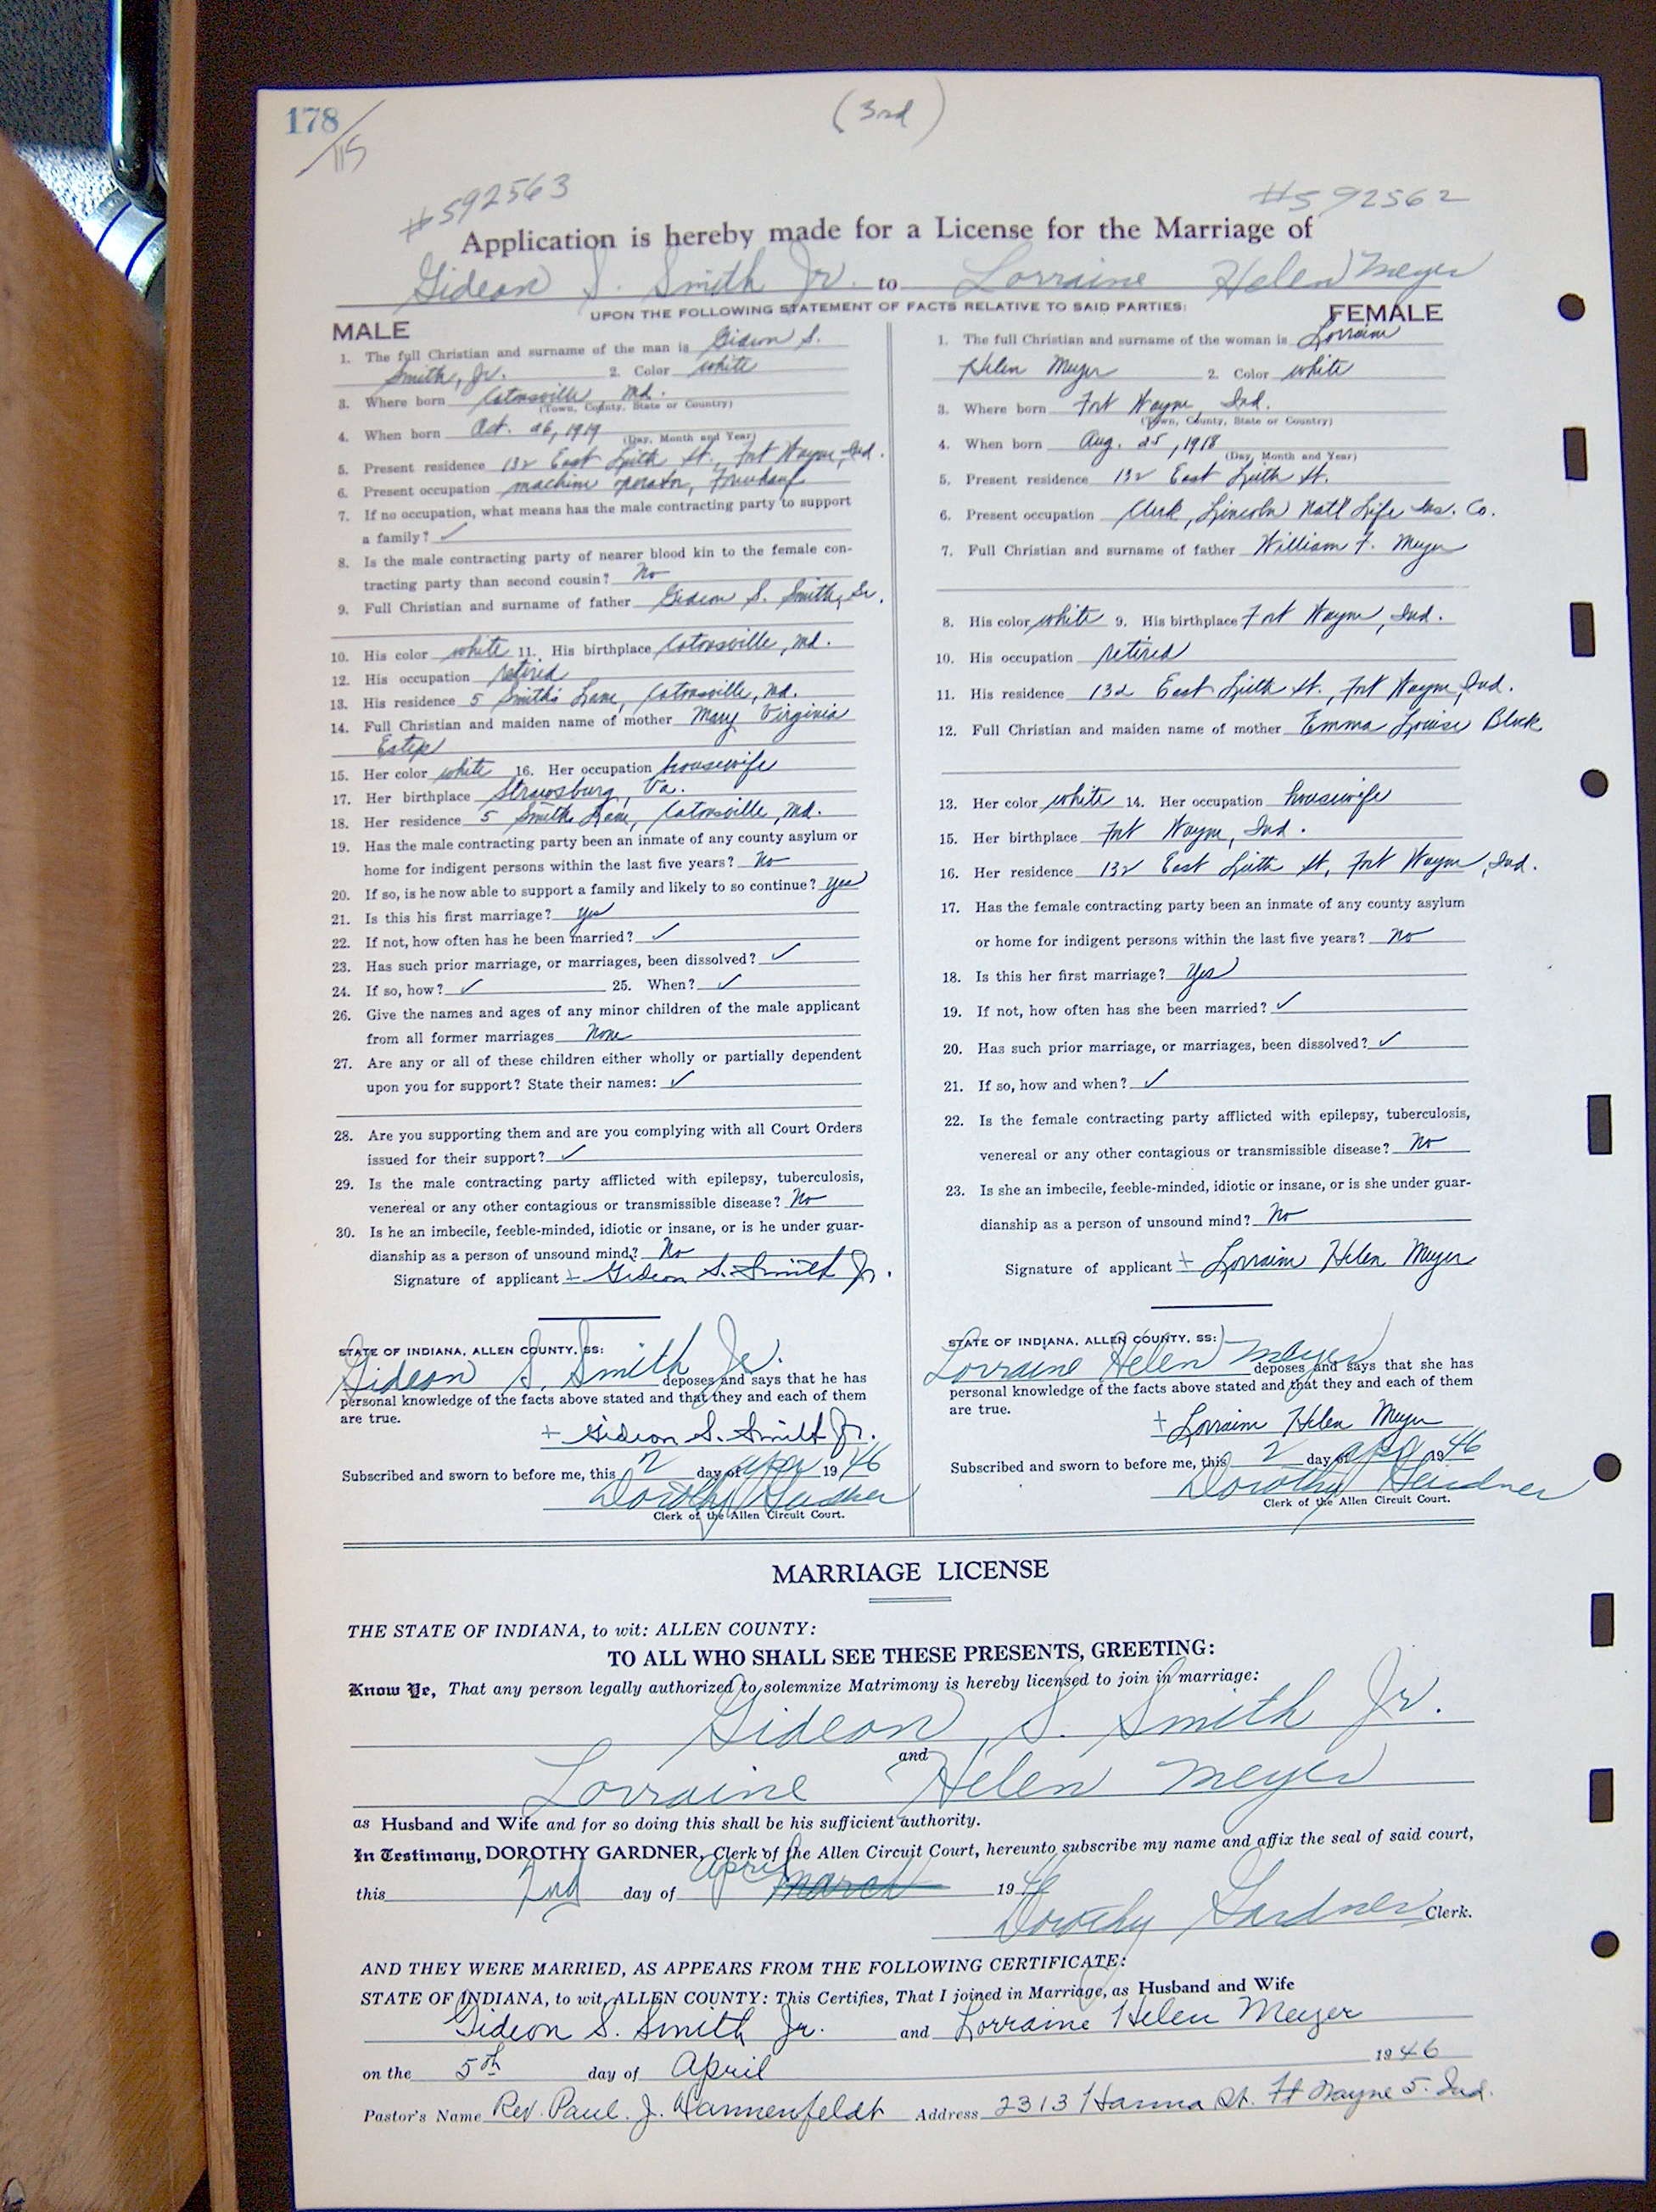 178
/115
(3rd)
#592563
#592562
Application is hereby made for a License for the Marriage of
Gideon S. Smith Jr. to Lorraine Helen Meyer
UPON THE FOLLOWING STATEMENT OF FACTS RELATIVE TO SAID PARTIES:
MALE
1. The full Christian and surname of the man is Gideon S.
Smith, Jr. 2. Color white
3. Where born Catonsville, Md.
(Town, County, State or Country)
4. When born Oct. 26, 1919
(Day, Month and Year)
5. Present residence 132 East Leith St., Fort Wayne, Ind.
6. Present occupation machine operator, Fruehauf
7. If no occupation, what means has the male contracting party to support
a family? ✓
8. Is the male contracting party of nearer blood kin to the female con-
tracting party than second cousin? No
9. Full Christian and surname of father Gideon S. Smith, Sr.
10. His color white 11. His birthplace Catonsville, Md.
12. His occupation retired
13. His residence 5 Smith's Lane, Catonsville, Md.
14. Full Christian and maiden name of mother Mary Virginia
Estep
15. Her color white 16. Her occupation housewife
17. Her birthplace Strawsburg, Va.
18. Her residence 5 Smith Lane, Catonsville, Md.
19. Has the male contracting party been an inmate of any county asylum or
home for indigent persons within the last five years? No
20. If so, is he now able to support a family and likely to so continue? yes
21. Is this his first marriage? yes
22. If not, how often has he been married? ✓
23. Has such prior marriage, or marriages, been dissolved? ✓
24. If so, how? ✓ 25. When? ✓
26. Give the names and ages of any minor children of the male applicant
from all former marriages None
27. Are any or all of these children either wholly or partially dependent
upon you for support? State their names: ✓
28. Are you supporting them and are you complying with all Court Orders
issued for their support? ✓
29. Is the male contracting party afflicted with epilepsy, tuberculosis,
venereal or any other contagious or transmissible disease? No
30. Is he an imbecile, feeble-minded, idiotic or insane, or is he under guar-
dianship as a person of unsound mind? No
Signature of applicant + Gideon S. Smith Jr.
STATE OF INDIANA, ALLEN COUNTY, SS:
Gideon S. Smith Jr. deposes and says that he has
personal knowledge of the facts above stated and that they and each of them
are true.
+ Gideon S. Smith Jr.
Subscribed and sworn to before me, this 2 day of Apr 1946
Dorothy Gardner
Clerk of the Allen Circuit Court.
FEMALE
1. The full Christian and surname of the woman is Lorraine
Helen Meyer 2. Color white
3. Where born Fort Wayne, Ind.
(Town, County, State or Country)
4. When born Aug. 25, 1918
(Day, Month and Year)
5. Present residence 132 East Leith St.
6. Present occupation Clerk, Lincoln Nat'l Life Ins. Co.
7. Full Christian and surname of father William F. Meyer
8. His color white 9. His birthplace Fort Wayne, Ind.
10. His occupation retired
11. His residence 132 East Leith St., Fort Wayne, Ind.
12. Full Christian and maiden name of mother Emma Louise
13. Her color white 14. Her occupation housewife
15. Her birthplace Fort Wayne, Ind.
16. Her residence 132 East Leith St, Fort Wayne, Ind.
17. Has the female contracting party been an inmate of any county asylum
or home for indigent persons within the last five years? No
18. Is this her first marriage? Yes
19. If not, how often has she been married? ✓
20. Has such prior marriage, or marriages, been dissolved? ✓
21. If so, how and when? ✓
22. Is the female contracting party afflicted with epilepsy, tuberculosis,
venereal or any other contagious or transmissible disease? No
23. Is she an imbecile, feeble-minded, idiotic or insane, or is she under guar-
dianship as a person of unsound mind? No
Signature of applicant + Lorraine Helen Meyer
STATE OF INDIANA, ALLEN COUNTY, SS:
Lorraine Helen Meyer deposes and says that she has
personal knowledge of the facts above stated and that they and each of them
are true.
+ Lorraine Helen Meyer
Subscribed and sworn to before me, this 2 day of Apr 1946
Dorothy Gardner
Clerk of the Allen Circuit Court.
MARRIAGE LICENSE
THE STATE OF INDIANA, to wit: ALLEN COUNTY:
TO ALL WHO SHALL SEE THESE PRESENTS, GREETING:
Know Ye, That any person legally authorized to solemnize Matrimony is hereby licensed to join in marriage:
Gideon S. Smith Jr.
and
Lorraine Helen Meyer
as Husband and Wife and for so doing this shall be his sufficient authority.
In Testimony, DOROTHY GARDNER, Clerk of the Allen Circuit Court, hereunto subscribe my name and affix the seal of said court,
this 2nd day of April March 1946
Dorothy Gardner Clerk.
AND THEY WERE MARRIED, AS APPEARS FROM THE FOLLOWING CERTIFICATE:
STATE OF INDIANA, to wit, ALLEN COUNTY: This Certifies, That I joined in Marriage, as Husband and Wife
Gideon S. Smith Jr. and Lorraine Helen Meyer
on the 5th day of April 1946
Pastor's Name Rev. Paul. J. Dannenfeldt Address 2313 Hanna St. Ft Wayne 5. Ind.